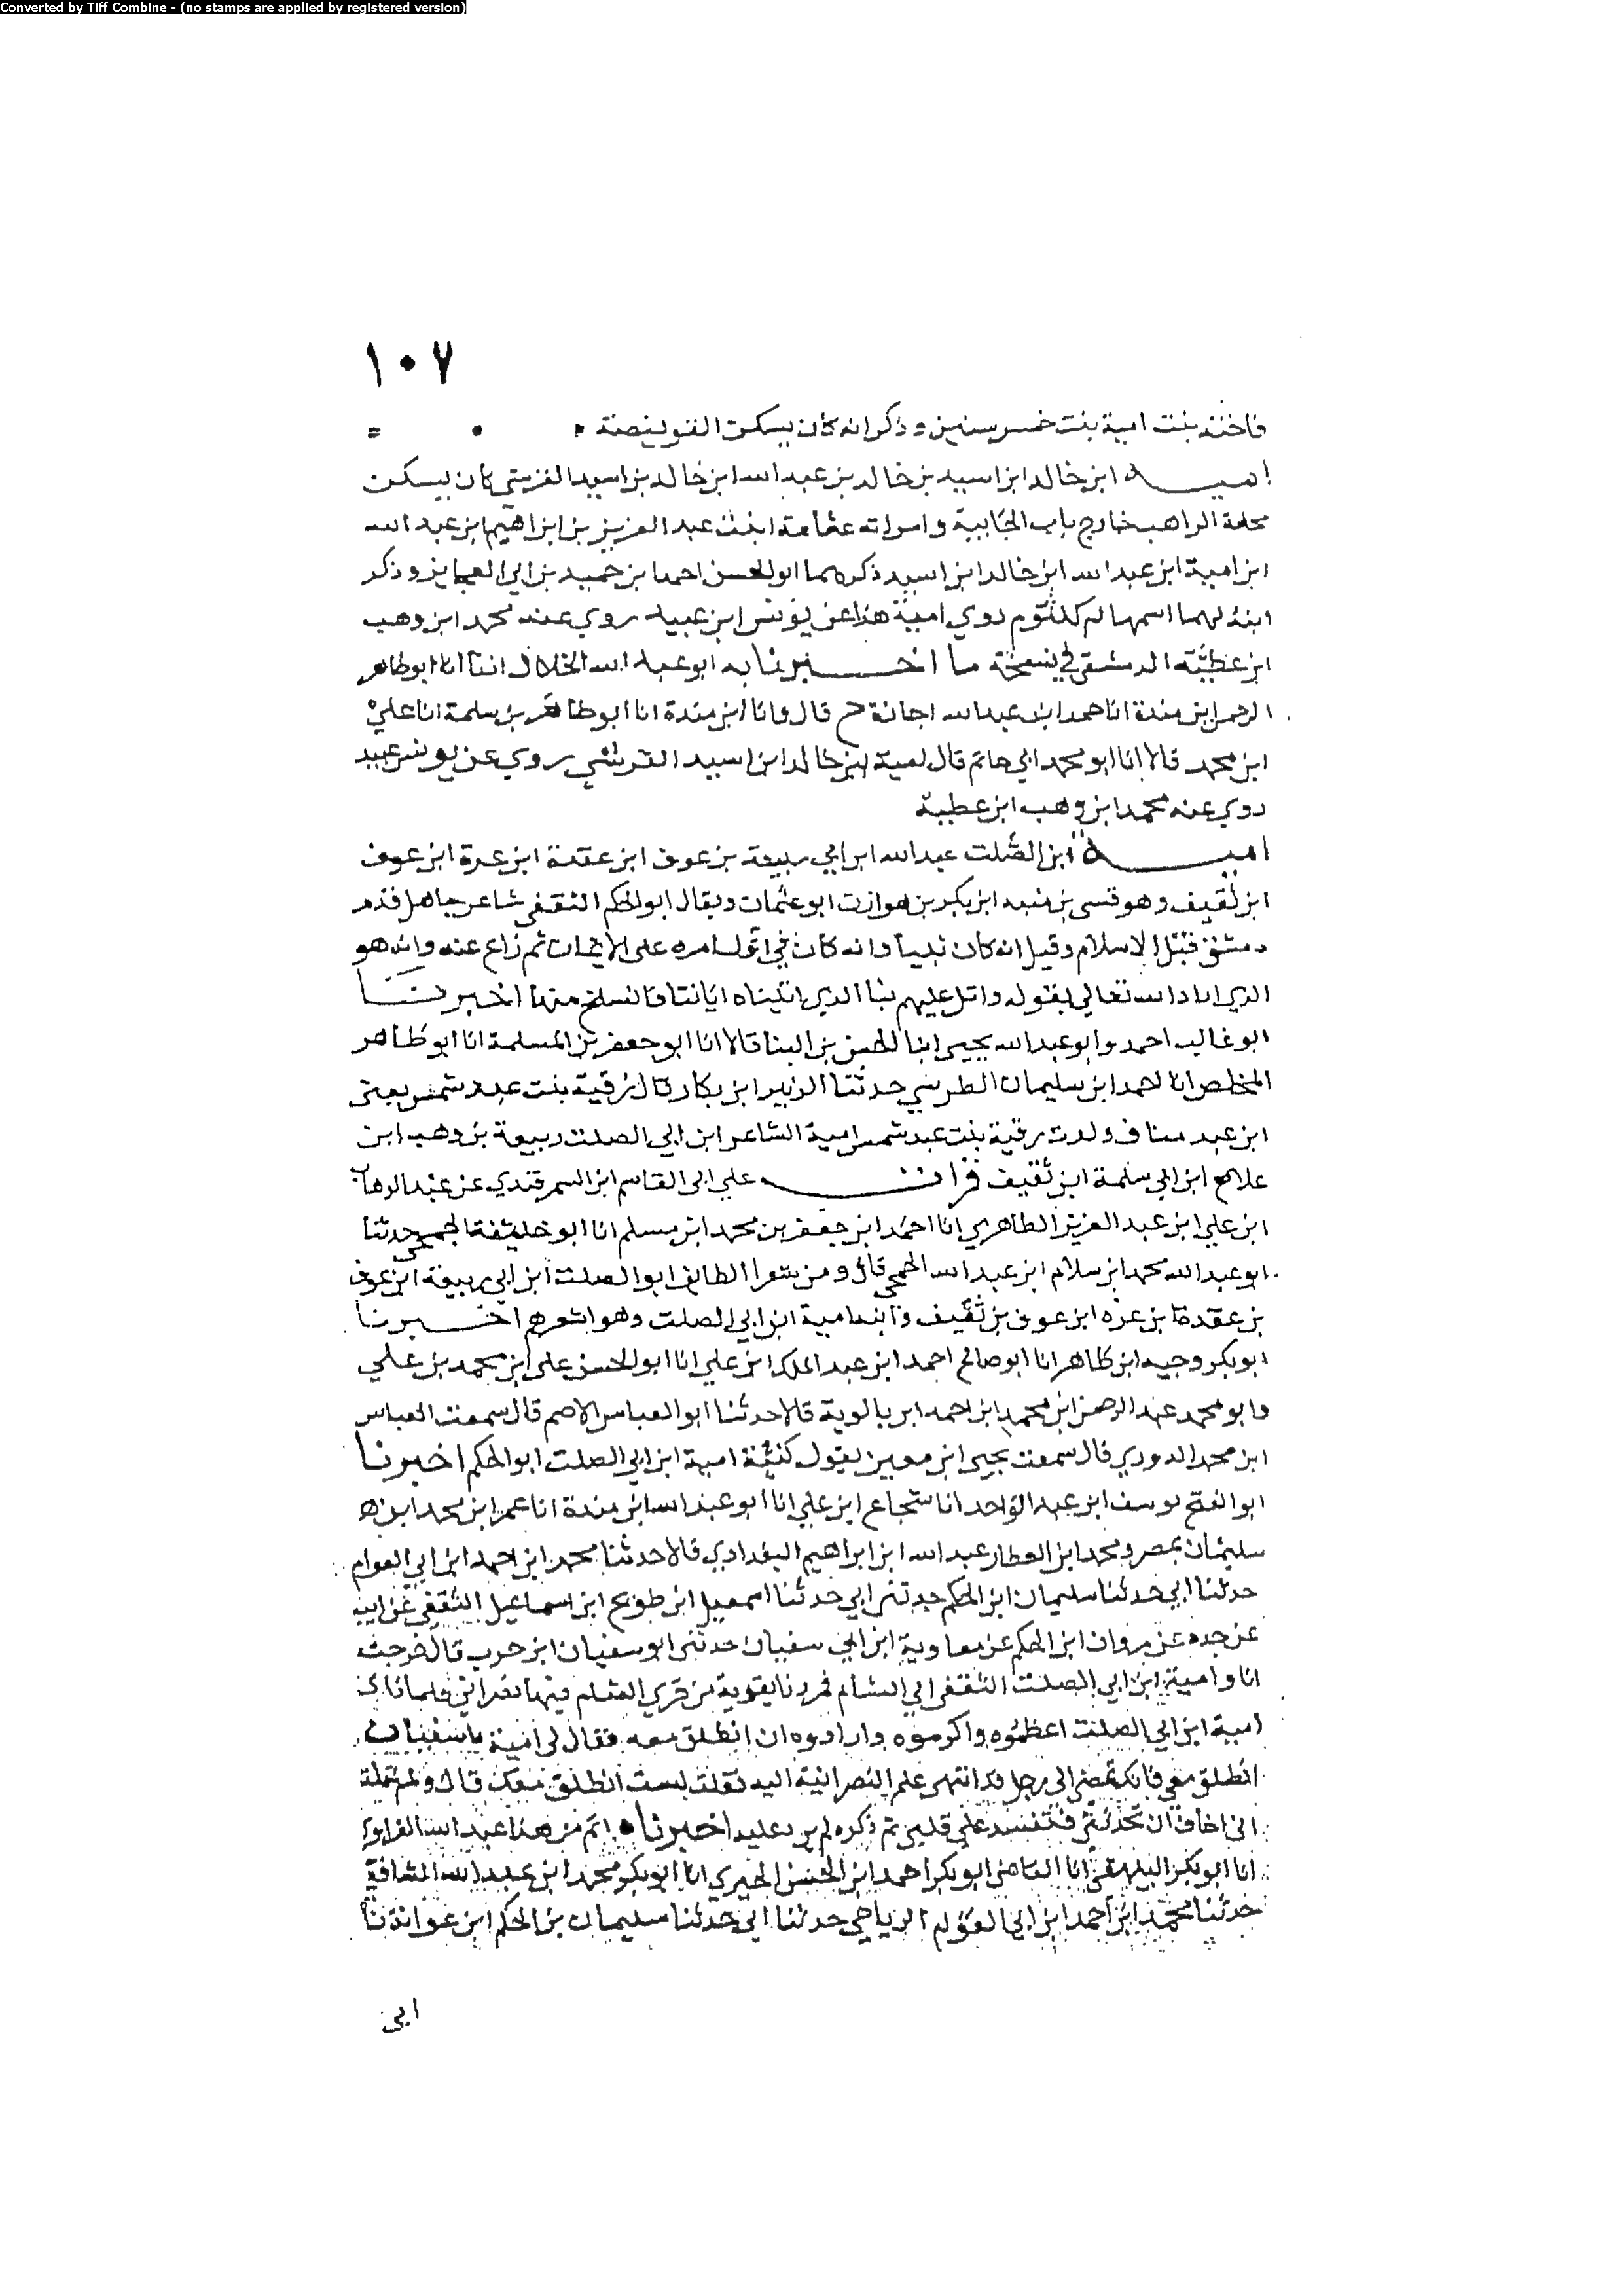 Converted by Tiff Combine - (no stamps are applied by registered version)
١٠٧
فاخته بنت امية بنت خمس سنين وذكر انه كان يسكن
امية ابن خالد ابن اسيد بن خالد بن عبد الله ابن خالد بن اسيد القرشي كان يسكن
محلة الراهب خارج باب الجابية وامراته عثامة ابنت عبد العزيز بن ابراهيم ابن عبد الله
ابن امية ابن عبد الله ابن خالد ابن اسيد ذكرهما ابو الحسن احمد ابن حميد بن ابي العجايز وذكر
ابنة لهما اسمها ام كلثوم روي امية هذا عن يونس ابن عبيد روي عنه محمد ابن وهب
ابن عطية الدمشقي في نسخة ما اخبرنا به ابو عبد الله الخلال انا ابو طاهر
الرحمن ابن مندة انا حمد ابن عبد الله اجازة ح قال وانا ابن مندة انا ابو طاهر بن سلمة انا علي
ابن محمد قالا انا ابو محمد ابي حاتم قال امية ابن خالد ابن اسيد القرشي روي عن يونس عبيد
روي عنه محمد ابن وهب ابن عطية
امية ابن الصلت عبد الله ابن ابي ربيعة بن عوف ابن عقدة ابن عزة ابن عوف
ابن ثقيف وهو قسي بن منبه ابن بكر بن هوازن ابو عثمان ويقال ابو الحكم الثقفي شاعر جاهل قدم
دمشق قبل الاسلام وقيل انه كان نبيا وانه كان في اول امره على الايمان ثم زاغ عنه وانه هو
الذي اراد الله تعالى بقوله واتل عليهم نبا الذي اتيناه اياتنا فانسلخ منها اخبرنا
ابو غالب احمد وابو عبد الله يحيى ابنا الحسن بن البنا قالا انا ابو جعفر بن المسلمة انا ابو طاهر
المخلص انا احمد ابن سليمان الطوسي حدثنا الزبير ابن بكار قال رقية بنت عبد شمس يعني
ابن عبد مناف ولدت رقية بنت عبد شمس امية الشاعر ابن ابي الصلت ربيعة بن وهب ابن
علاج ابن ابي سلمة ابن ثقيف قرات علي ابي القاسم ابن السمرقندي عن عبد الوهاب
ابن علي ابن عبد العزيز الطاهري انا احمد ابن جعفر بن محمد ابن مسلم انا ابو خليفة الجمحي حدثنا
ابو عبد الله محمد ابن سلام ابن عبد الله الجمحي قال ومن شعرا الطايف ابو الصلت ابن ابي ربيعة ابن عوف
بن عقدة ابن عزه ابن عوف بن ثقيف وابنه امية ابن ابي الصلت وهو اشعرهم اخبرنا
ابو بكر وجيه ابن طاهر انا ابو صالح احمد ابن عبد الملك ابن علي انا ابو الحسن علي ابن محمد بن علي
وابو محمد عبد الرحمن ابن محمد ابن احمد ابن بالوية قالا حدثنا ابو العباس الاصم قال سمعت العباس
ابن محمد الدوري قال سمعت يحيى ابن معين يقول كنية امية ابن ابي الصلت ابو الحكم اخبرنا
ابو الفتح يوسف ابن عبد الواحد انا شجاع ابن علي انا ابو عبد الله ابن مندة انا عمر ابن محمد ابن
سليمان بمصر ومحمد ابن العطار عبد الله ابن ابراهيم البغدادي قالا حدثنا محمد ابن احمد ابن ابي العوام
حدثنا ابي حدثنا سليمان ابن الحكم حدثني ابي حدثنا اسمعيل ابن طويح ابن اسماعيل الثقفي عن ابيه
عن جده عن مروان ابن الحكم عن معاوية ابن ابي سفيان حدثني ابو سفيان ابن حرب قال خرجت
انا وامية ابن ابي الصلت الثقفي الي الشام فمررنا بقرية من قري الشام فيها نصراني فلما
امية ابن ابي الصلت اعظموه واكرموه وارادوه ان انطلق معه فقال لي امية يا سفيان
انطلق معي فانك تمضي الى رجل قد انتهى علم النصرانية اليه فقلت لست انطلق معك قال ولم قلت
اني اخاف ان تحدثني فتفسد علي قلبي ثم ذكره لم يزد عليه اخبرنا اتم من هذا عبد الله
انا ابو بكر البيهقي انا القاضي ابو بكر احمد ابن الحسن الحيري انا ابو بكر محمد ابن عبد الله الشافعي
حدثنا محمد ابن احمد ابن ابي العوام الرياحي حدثنا ابي حدثنا سليمان بن الحكم ابن عوانة
ابي